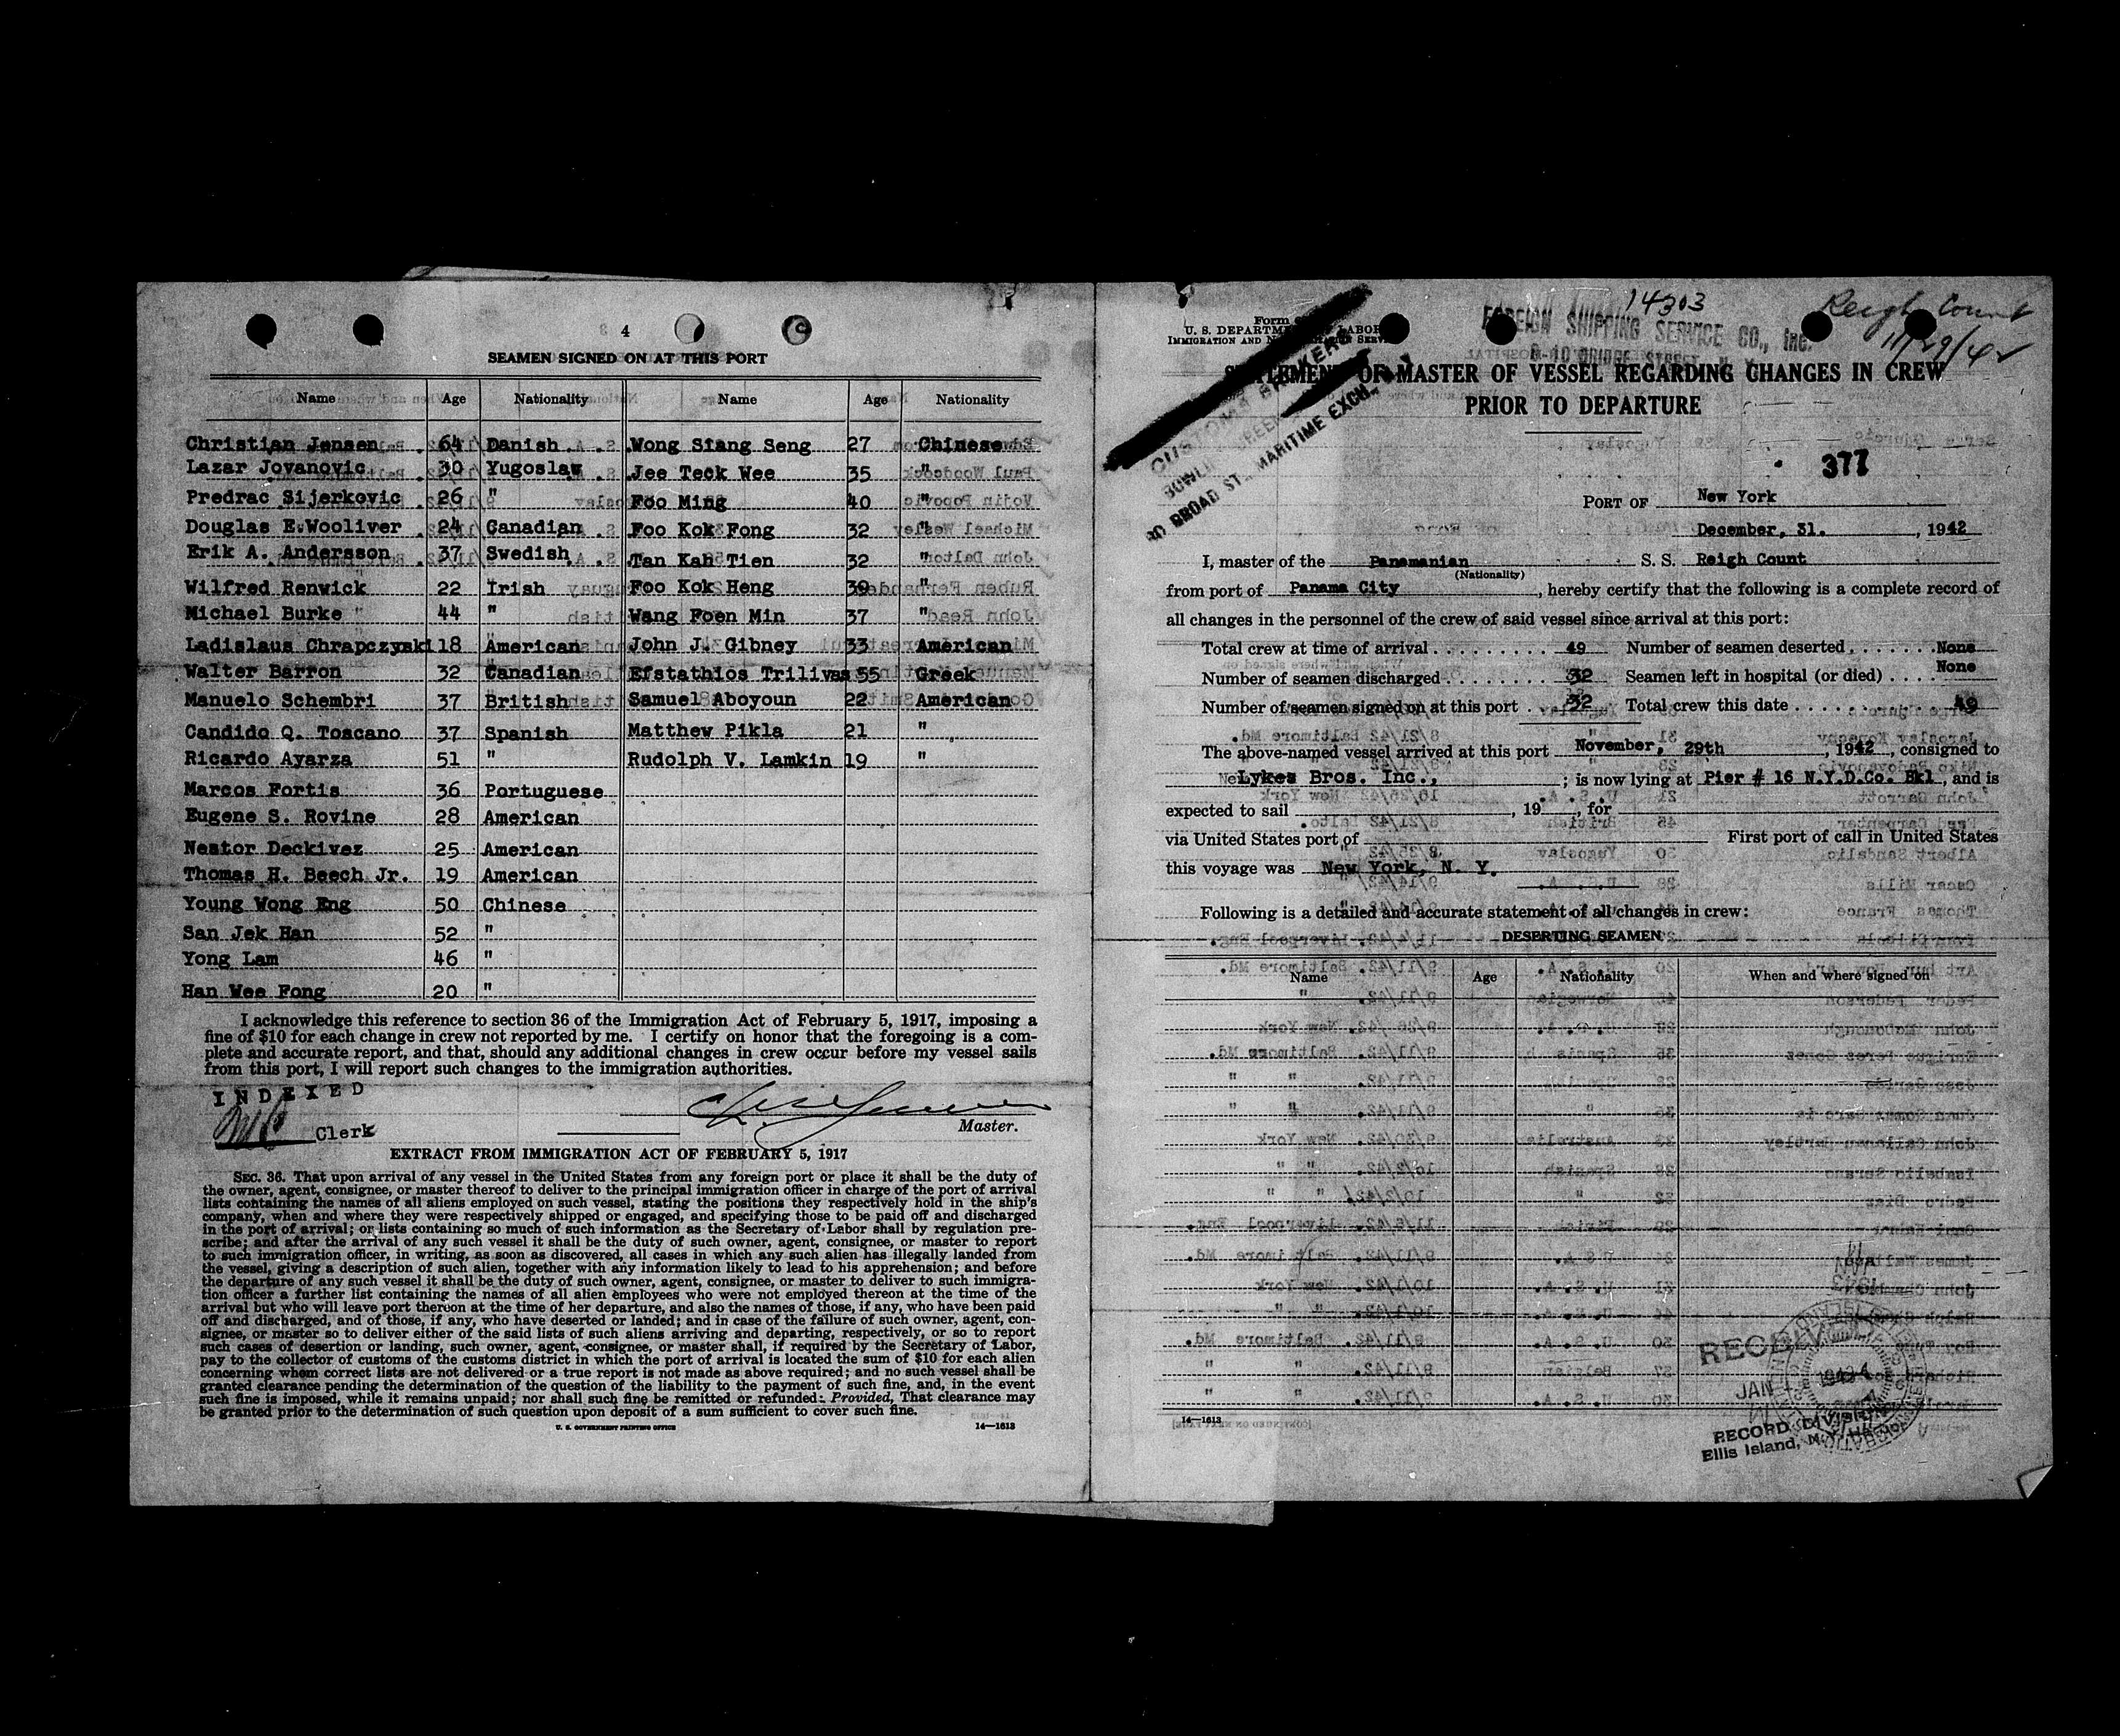 4
SEAMEN SIGNED ON AT THIS PORT
Name Age Nationality Name Age Nationality
Christian Jensen 64 Danish Wong Siang Seng 27 Chinese
Lazar Jovanovic 30 Yugoslav Jee Teck Wee 35 "
Predrac Sijerkovic 26 " Foo Ming 40 "
Douglas E.Wooliver 24 Canadian Foo Kok Fong 32 "
Erik A. Andersson 37 Swedish Tan Kah Tien 32 "
Wilfred Renwick 22 Irish Foo Kok Heng 39 "
Michael Burke 44 " Wang Foen Min 37 "
Ladislaus Chrapczynski 18 American John J. Gibney 33 American
Walter Barron 32 Canadian Efstathios Trilivas 55 Greek
Manuelo Schembri 37 British Samuel Aboyoun 22 American
Candido Q. Toscano 37 Spanish Matthew Pikla 21 "
Ricardo Ayarza 51 " Rudolph V. Lamkin 19 "
Marcos Fortis 36 Portuguese
Eugene S. Rovine 28 American
Nestor Deckivez 25 American
Thomas H. Beech Jr. 19 American
Young Wong Eng 50 Chinese
San Jek Han 52 "
Yong Lam 46 "
Han Wee Fong 20 "
I acknowledge this reference to section 36 of the Immigration Act of February 5, 1917, imposing a
fine of $10 for each change in crew not reported by me. I certify on honor that the foregoing is a com-
plete and accurate report, and that, should any additional changes in crew occur before my vessel sails
from this port, I will report such changes to the immigration authorities.
INDEXED
Clerk
Master.
EXTRACT FROM IMMIGRATION ACT OF FEBRUARY 5, 1917
SEC. 36. That upon arrival of any vessel in the United States from any foreign port or place it shall be the duty of
the owner, agent, consignee, or master thereof to deliver to the principal immigration officer in charge of the port of arrival
lists containing the names of all aliens employed on such vessel, stating the positions they respectively hold in the ship's
company, when and where they were respectively shipped or engaged, and specifying those to be paid off and discharged
in the port of arrival; or lists containing so much of such information as the Secretary of Labor shall by regulation pre-
scribe; and after the arrival of any such vessel it shall be the duty of such owner, agent, consignee, or master to report
to such immigration officer, in writing, as soon as discovered, all cases in which any such alien has illegally landed from
the vessel, giving a description of such alien, together with any information likely to lead to his apprehension; and before
the departure of any such vessel it shall be the duty of such owner, agent, consignee, or master to deliver to such immigra-
tion officer a further list containing the names of all alien employees who were not employed thereon at the time of the
arrival but who will leave port thereon at the time of her departure, and also the names of those, if any, who have been paid
off and discharged, and of those, if any, who have deserted or landed; and in case of the failure of such owner, agent, con-
signee, or master so to deliver either of the said lists of such aliens arriving and departing, respectively, or so to report
such cases of desertion or landing, such owner, agent, consignee, or master shall, if required by the Secretary of Labor,
pay to the collector of customs of the customs district in which the port of arrival is located the sum of $10 for each alien
concerning whom correct lists are not delivered or a true report is not made as above required; and no such vessel shall be
granted clearance pending the determination of the question of the liability to the payment of such fine, and, in the event
such fine is imposed, while it remains unpaid; nor shall such fine be remitted or refunded: Provided, That clearance may
be granted prior to the determination of such question upon deposit of a sum sufficient to cover such fine.
U. S. GOVERNMENT PRINTING OFFICE 14—1613
14303
Reigh Count
11/29/42
Form
U. S. DEPARTMENT OF LABOR
IMMIGRATION AND NATURALIZATION SERVICE
FOREIGN SHIPPING SERVICE CO., Inc.
8-10 BRIDGE STREET, N. Y.
BROAD ST. MARITIME EXCH.
STATEMENT OF MASTER OF VESSEL REGARDING CHANGES IN CREW
PRIOR TO DEPARTURE
377
PORT OF New York
December, 31. , 1942
I, master of the Panamanian S. S. Reigh Count
(Nationality)
from port of Panama City , hereby certify that the following is a complete record of
all changes in the personnel of the crew of said vessel since arrival at this port:
Total crew at time of arrival 49 Number of seamen deserted None
Number of seamen discharged 32 Seamen left in hospital (or died) None
Number of seamen signed on at this port 32 Total crew this date 49
The above-named vessel arrived at this port November, 29th , 1942 , consigned to
Lykes Bros. Inc., ; is now lying at Pier # 16 N.Y.D.Co. Bkl , and is
expected to sail , 19 , for
via United States port of First port of call in United States
this voyage was New York, N. Y.
Following is a detailed and accurate statement of all changes in crew:
DESERTING SEAMEN
Name Age Nationality When and where signed on
14—1613
RECEIVED
JAN
1943
RECORD DIVISION
Ellis Island, N. Y.